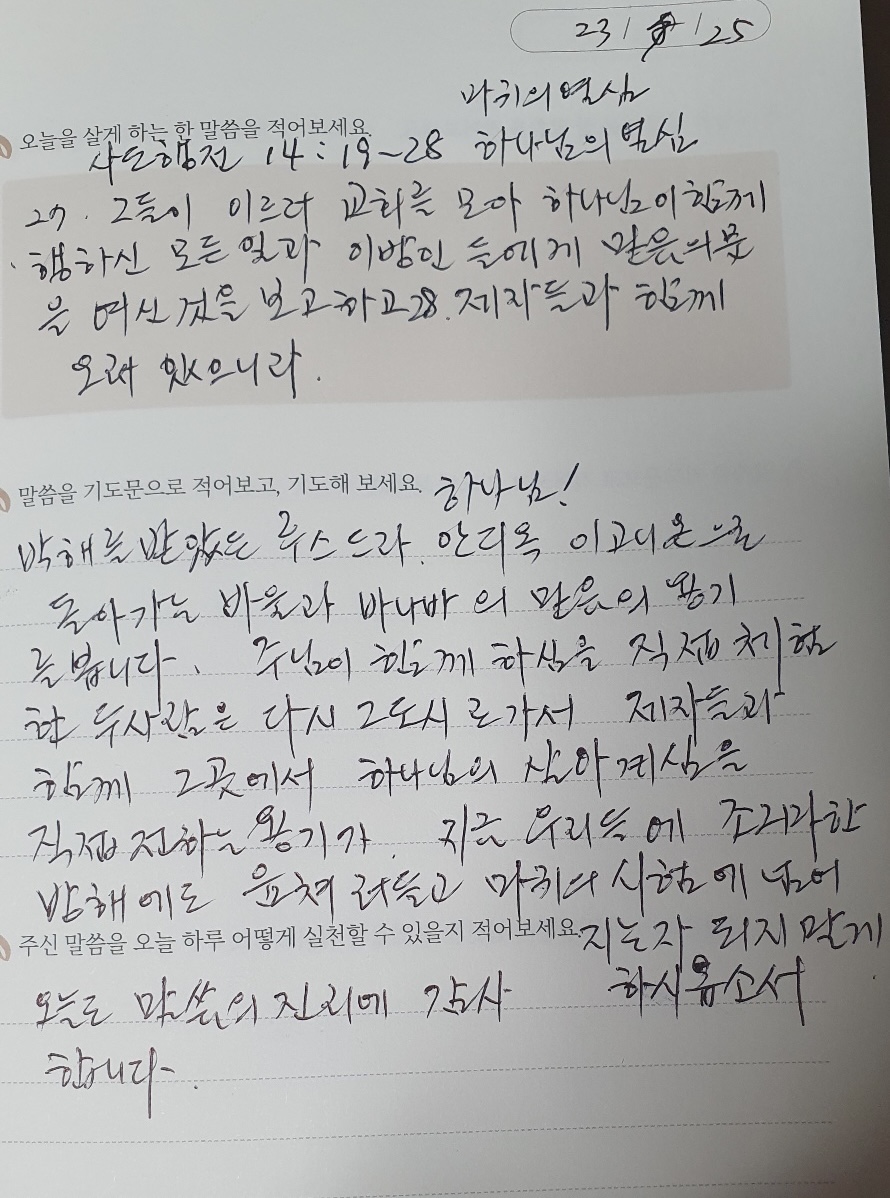 23 / / 25
마귀의 열심
오늘을 살게 하는 한 말씀을 적어보세요.
사도행전 14:19~28 하나님의 열심
27. 그들이 이르러 교회를 모아 하나님이 함께
행하신 모든 일과 이방인 들에게 믿음의 문
을 여신 것을 보고하고 28. 제자들과 함께
오래 있으니라.
말씀을 기도문으로 적어보고, 기도해 보세요. 하나님!
박해를 받았든 루스드라. 안디옥 이고니온으로
돌아가는 바울과 바나바 의 믿음의 용기
를 봅니다. 주님이 함께 하심을 직접 체험
한 두사람은 다시 그도시 로가서 제자들과
함께 그곳에서 하나님의 살아 계심을
직접 전하는 용기가. 지금 우리들 에 조그마한
방해 에도 움쳐 러들고 마귀의 시험 에 넘어
주신 말씀을 오늘 하루 어떻게 실천할 수 있을지 적어보세요. 지는자 되지 말게
오늘도 말씀의 진리에 감사 하시옵소서
합니다.